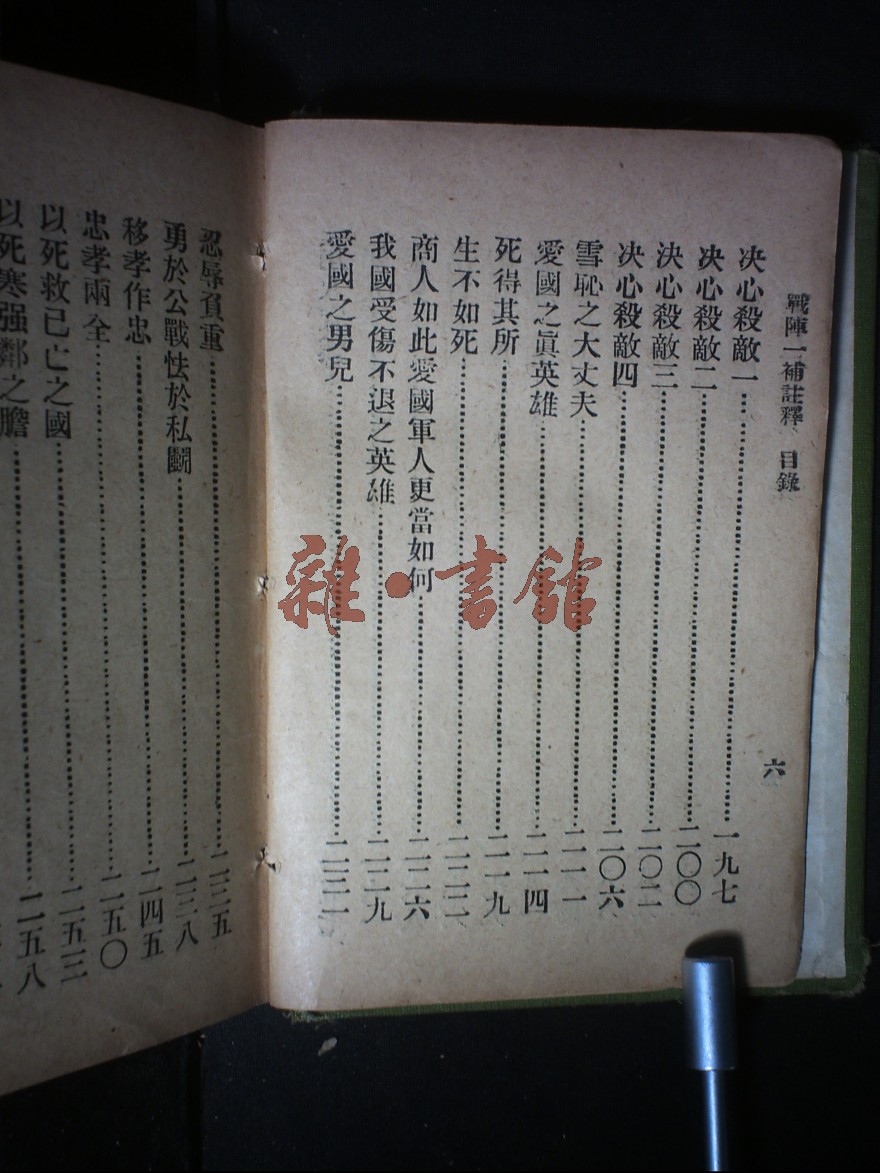 戰陣一補註釋 目錄 六
決心殺敵一………一九七
決心殺敵二………二〇〇
決心殺敵三………二〇二
決心殺敵四………二〇六
雪恥之大丈夫………二一一
愛國之眞英雄………二一四
死得其所………二一九
生不如死………二二三
商人如此愛國軍人更當如何………二二六
我國受傷不退之英雄………二二九
愛國之男兒………二三一
忍辱負重………二三五
勇於公戰怯於私鬭………二三八
移孝作忠………二四五
忠孝兩全………二五〇
以死救已亡之國………二五三
以死寒强鄰之膽………二五八
雜·書館